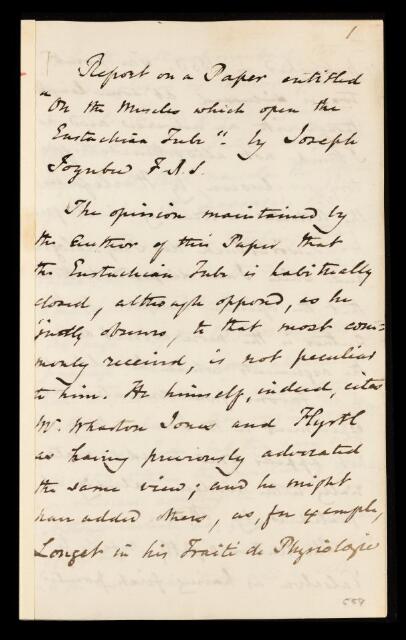 1
Report on a Paper entitled
"On the Muscles which open the
Eustachian Tube". by Joseph
Toynbee F.R.S.
The opinion maintained by
the Author of this Paper that
the Eustachian Tube is habitually
closed, although opposed, as he
justly observes, to that most com-
monly received, is not peculiar
to him. He himself, indeed, cites
Mr. Wharton Jones and Hyrtl
as having previously advocated
the same view; and he might
have added others, as, for example,
Longet in his Traité de Physiologie
559